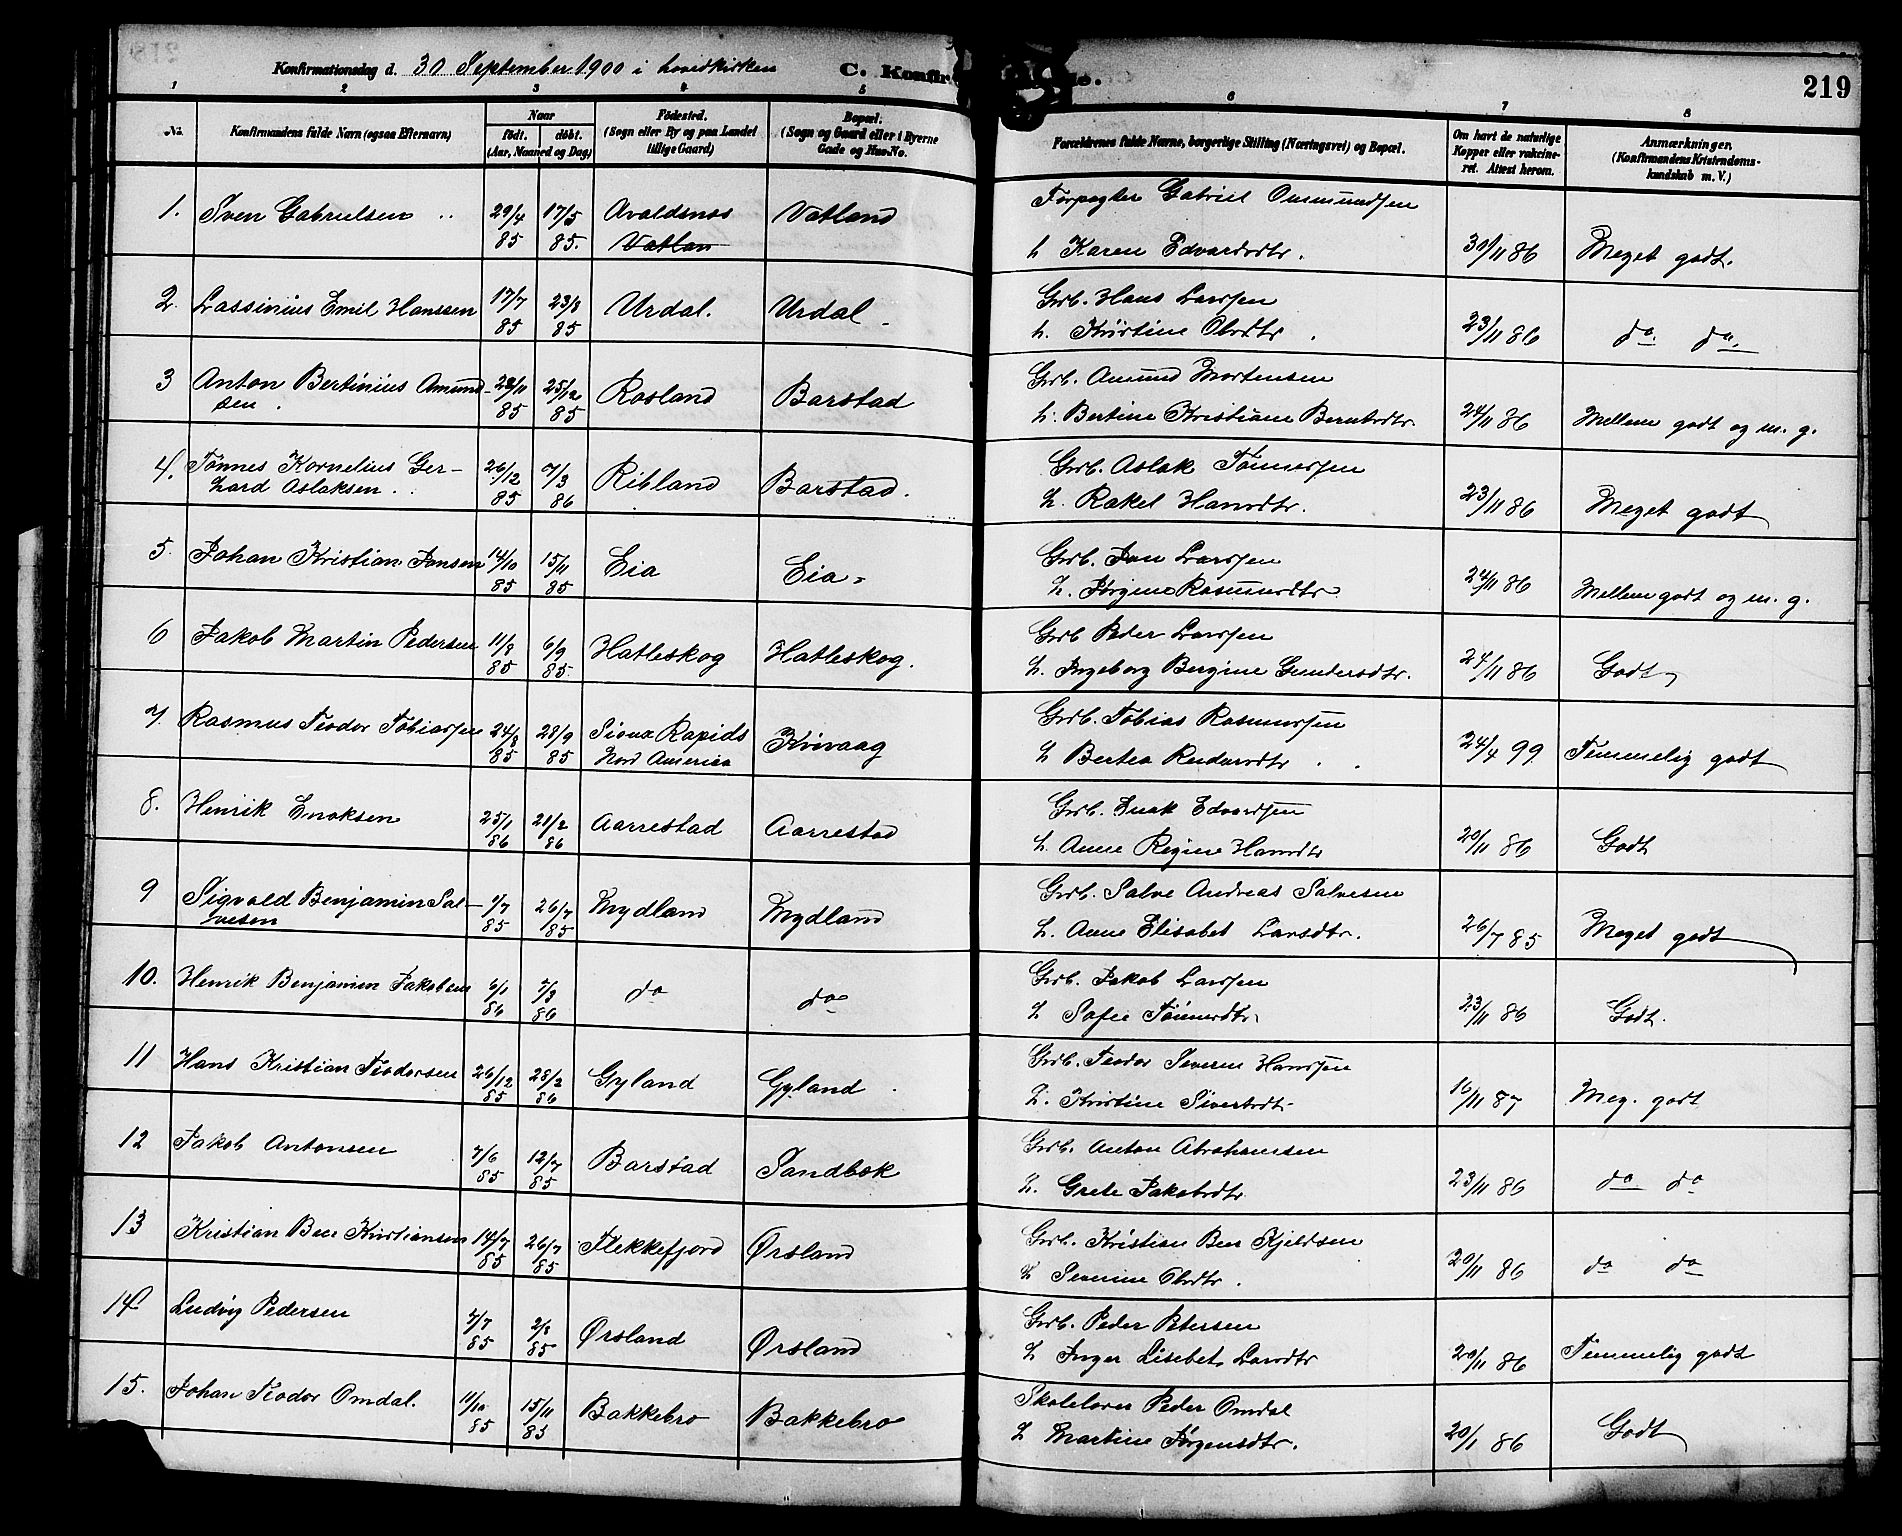 Konfirmationsdag d. 30 September 1900 i hovedkirken C. Konfir 219
1 2 3 4 5 6 7 8
No. Konfirmandens fulde Navn (ogsaa Efternavn) Naar født. døbt. (Aar, Maaned og Dag) Fødested. (Sogn eller By og paa Landet tillige Gaard) Bopæl. (Sogn og Gaard eller i Byerne Gade og Hus-No. Forældrenes fulde Navne, borgerlige Stilling (Næringsvei) og Bopæl. Om havt de naturlige Kopper eller vaccineret. Attest herom. Anmærkninger. (Konfirmandens Kristendomskundskab m. V.)
1. Sven Gabrielsen 29/4 85 17/5 85. Avaldsnes Vatlan Vatland Forpagter Gabriel Ommundsen
h Karen Edvardsdtr. 30/11 86 Meget godt.
2. Lassinius Emil Hanssen 17/7 85 23/8 85 Urdal. Urdal Grb. Hans Larssen
h. Kristine Olsdtr. 23/11 86 do. do.
3 Anton Bertinius Amundsen. 28/11 85 25/12 85 Rosland Barstad Grb. Amund Mortensen
h. Bertine Kristiane Berntsdtr. 24/11 86 Mellem godt og m. g.
4. Tønnes Kornelius Gerhard Aslaksen. 26/12 85 7/3 86 Ribland Barstad. Grb. Aslak Tønnessen
h. Rakel Hansdtr. 23/11 86 Meget godt
5. Johan Kristian Jansen 14/10 85 15/11 85 Eia Eia Grb. Jan Larssen
h. Jørgine Rasmusdtr. 24/11 86 Mellem godt og m. g.
6 Jakob Martin Pedersen 11/8 85 6/9 85. Hatleskog Hatleskog. Grb Peder Larssen
h. Ingeborg Bergine Gundersdtr. 24/11 86 Godt
7. Rasmus Teodor Tobiassen 24/8 85 28/9 85 Sioux Rapids Nord Amerika Kvivaag Grb. Tobias Rasmussen
h Bertea 24/4 99 Temmelig godt
8. Henrik Enoksen 25/1 86 21/2 86 Aarrestad Aarrestad Grb. Enok Edvardsen
h. Anne Regine Hansdtr 20/11 86 Godt
9 Sigvald Benjamin Salvesen 1/7 85 26/7 85 Mydland Mydland Grb. Salve Andreas Salvesen
h. Anne Elisabet Larsdtr. 26/7 85 Meget godt
10. Henrik Benjamin Jakobsen 6/1 86 7/3 86 do do Grb. Jakob Larssen
h Sofie Tønnesdtr. 23/11 86 Godt.
11 Hans Kristian Teodorsen 26/12 85 28/2 86 Gyland Gyland Grb. Teodor Severin Hanssen
h. Kristine Sivertsdtr 16/11 87 Meg. godt
12 Jakob Antonsen 7/6 85 12/7 85 Barstad Sandbek Grb. Anton Abrahamsen
h. Grete Jakobsdtr 23/11 86 do do
13 Kristian Beer Kristiansen 14/7 85 26/7 85 Flekkefjord Ørsland Grb. Kristian Beer Kjeldsen
h Severine Olsdtr. 20/11 86 do do
14 Ludvig Pedersen 7/7 85 2/8 85 Ørsland Ørsland Grb. Peder Petersen
h Inger Lisebet Larsdtr 20/11 86 Temmelig godt
15. Johan Teodor Omdal. 11/10 85 15/11 85 Bakkebro Bakkebro Skolelærer Peder Omdal
h Martine Jørgensdtr. 20/1 86 Godt